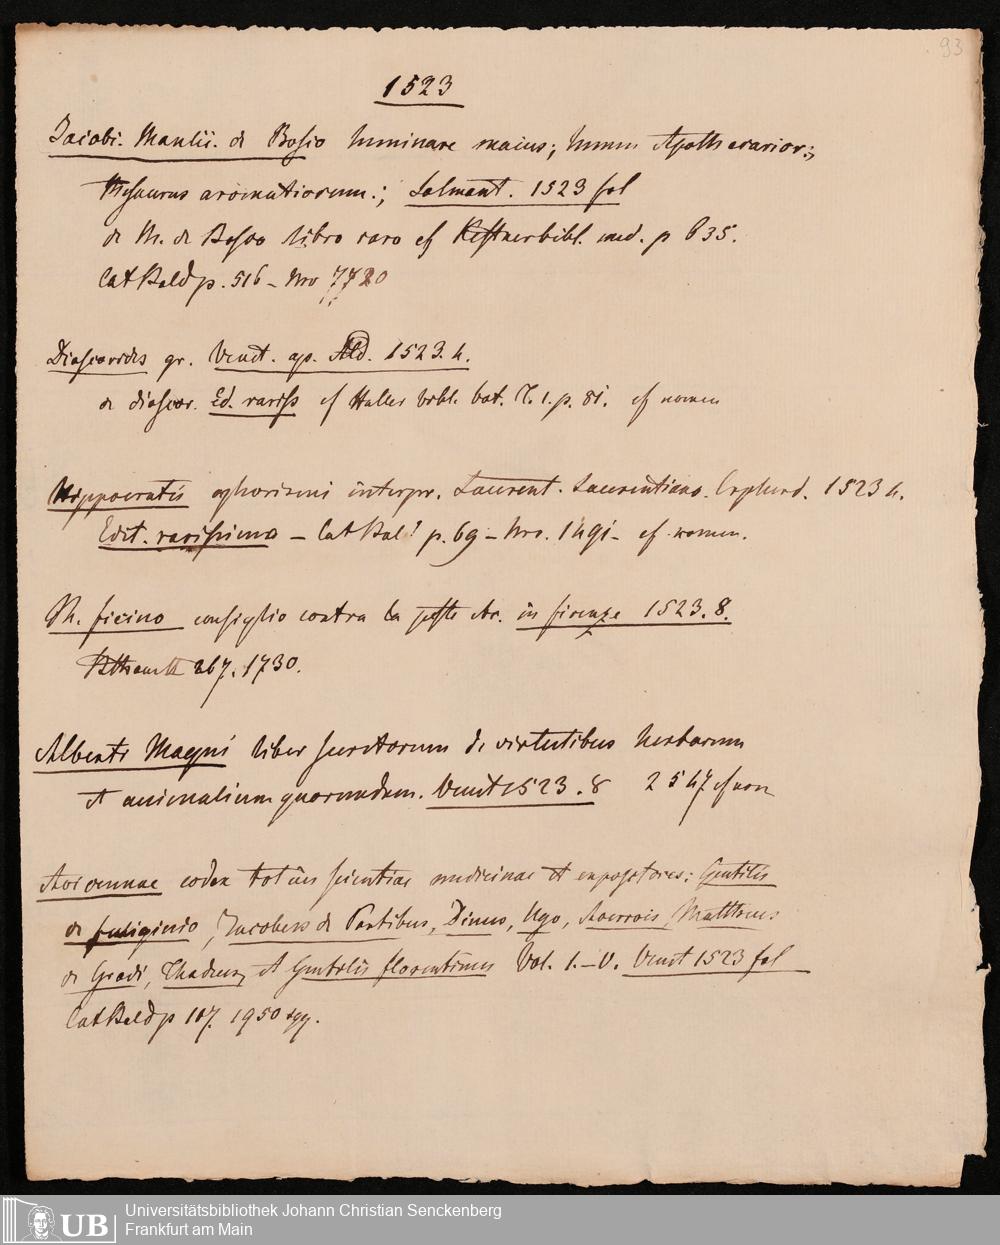 93
1523
Jacobi. Manlii. de Bosio luminare maius; lumen Apothecarior:;
thesaurus aromatiorum:; Salmant. 1523 fol
de M. de Bosio libro raro cf Kestner bibl. med. p 635.
Cat Bald p. 516 - Nro 7720
Dioscorides gr. Venet. ap. Ald. 1523. 4.
de dioscor. Ed. rariss cf Haller bibl. bot. T. 1. p. 81. cf nomen
Hippocratis aphorismi interpr. Laurent. Laurentiano. 1523 4.
Edit. rarissima - Cat Bal: p. 69 - Nro. 1491 - cf nomen.
M. ficino consiglio contra la peste etc. in firenze 1523. 8.
267. 1730.
Alberti Magni liber secretorum de virtutibus herbarum
et animalium quorumdam. Venet 1523. 8 2547 cf nom
Avicennae codex totius scientiae medicinae et expositores: Gentilis
de fuliginio, Jacobus de Partibus, Dinus, Ugo, Averrois, Matthaeus
de Gradi, Thadeus, et Gentilis florentinus Vol. 1. - V. Venet 1523 fol
Cat Bald p 107. 1950 sqq.
Universitätsbibliothek Johann Christian Senckenberg
UB Frankfurt am Main